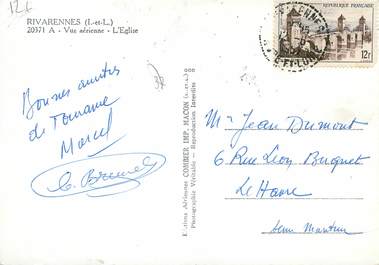 12f
RIVARENNES (I.-et-L.)
20371 A - Vue aérienne - L'Eglise
Bonnes amitiés
de Touraine
Marcel
Editions Aériennes COMBIER IMP. MACON (S.-et-L.)
Photographie Véritable - Reproduction Interdite
RÉPUBLIQUE FRANÇAISE
12F
Mr Jean Dumont
6 Rue Léon Buquet
Le Havre
Seine Maritime